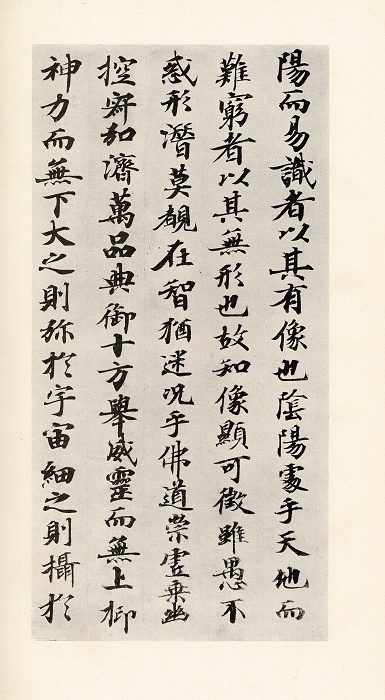 陽而易識者以其有像也陰陽處乎天地而
難窮者以其無形也故知像顯可徵雖愚不
惑形潛莫覩在智猶迷況乎佛道崇虛乗幽
控寂弘濟萬品典御十方舉威靈而無上抑
神力而無下大之則弥於宇宙細之則攝於